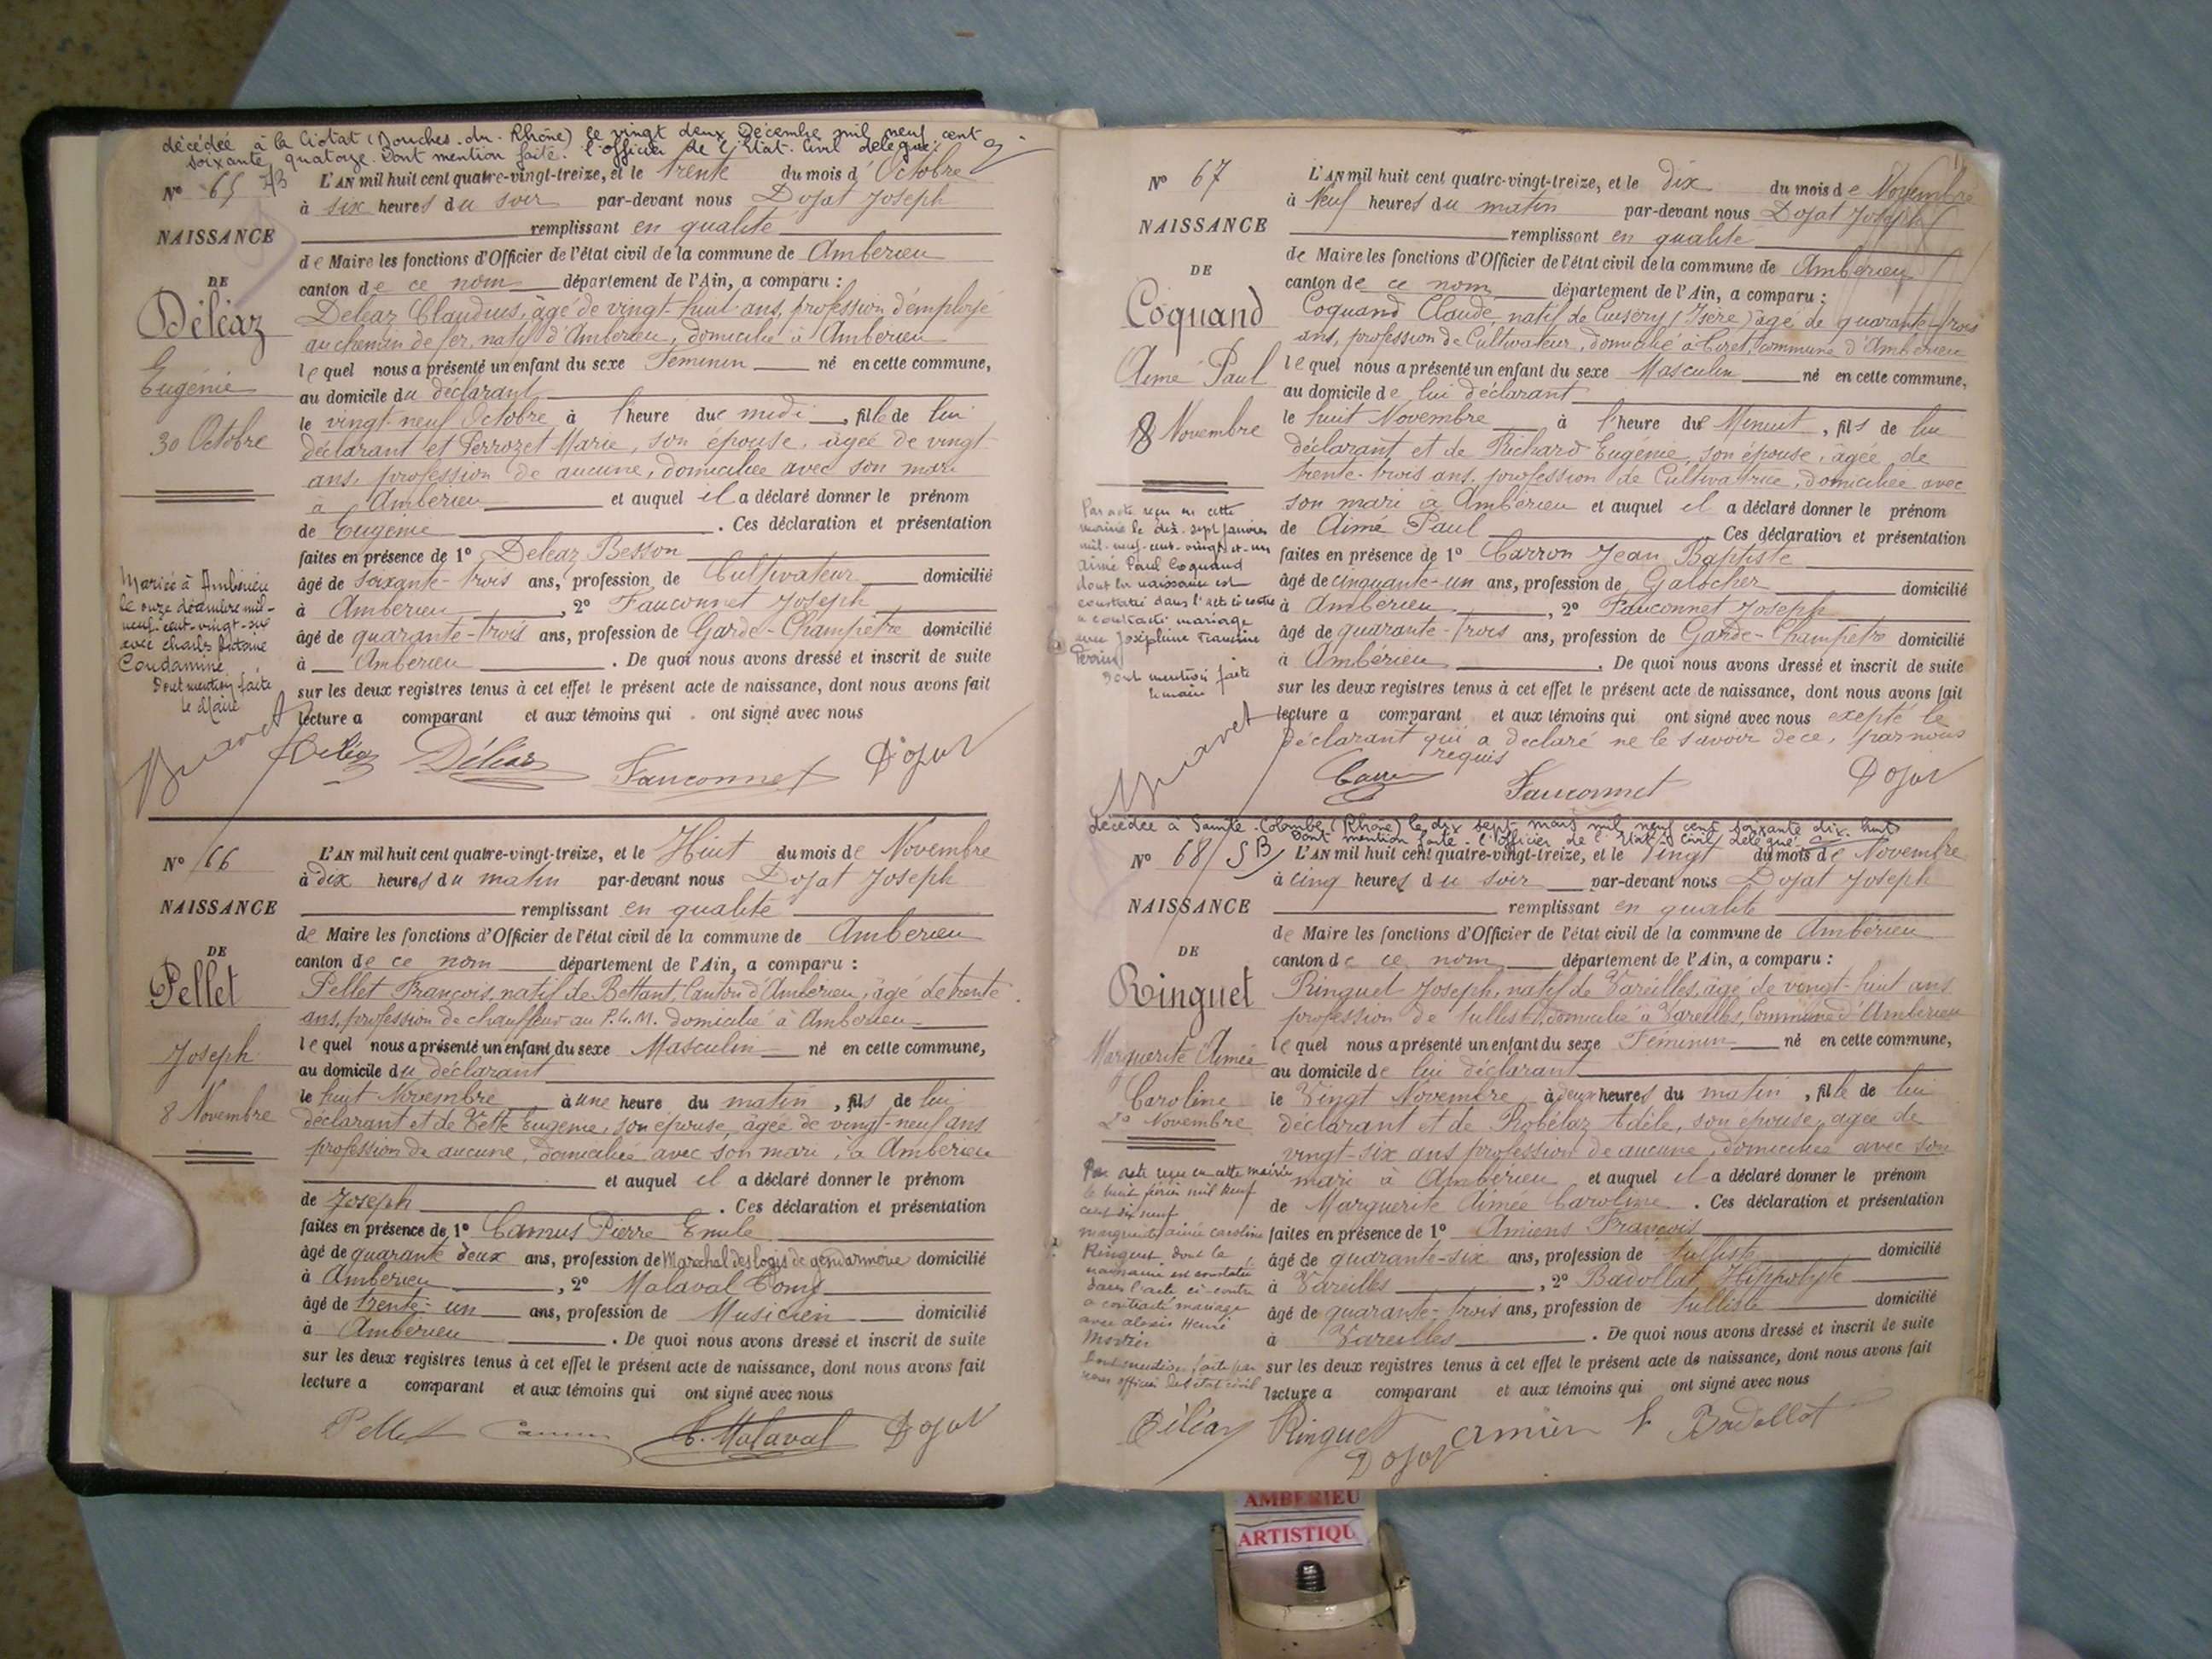 décédée à la Ciotat (Bouches-du-Rhône) le vingt deux Décembre mil neuf cent
soixante quatorze. Dont mention faite. l'officier de l'Etat-Civil délégué.
N° 65 AB
NAISSANCE
DE
Déléaz
Eugénie
30 Octobre
L'AN mil huit cent quatre-vingt-treize, et le trente du mois d'Octobre
à six heures du soir par-devant nous Dojat Joseph
remplissant en qualité
de Maire les fonctions d'Officier de l'état civil de la commune de Ambérieu
canton de ce nom département de l'Ain, a comparu :
Deléaz Claudius, âgé de vingt-huit ans, profession d'employé
au chemin de fer, natif d'Ambérieu, domicilié à Ambérieu
lequel nous a présenté un enfant du sexe Féminin né en cette commune,
au domicile du déclarant
le vingt-neuf Octobre à l'heure de midi, fille de lui
déclarant et Ferrozet Marie, son épouse, âgée de vingt
ans, profession de aucune, domiciliée avec son mari
à Ambérieu et auquel il a déclaré donner le prénom
de Eugénie . Ces déclaration et présentation
faites en présence de 1° Deleaz Besson
âgé de soixante-trois ans, profession de Cultivateur domicilié
à Ambérieu, 2° Fauconnet Joseph
âgé de quarante-trois ans, profession de Garde-Champêtre domicilié
à Ambérieu . De quoi nous avons dressé et inscrit de suite
sur les deux registres tenus à cet effet le présent acte de naissance, dont nous avons fait
lecture a comparant et aux témoins qui ont signé avec nous
Mariée à Ambérieu
le onze décembre mil-
neuf-cent-vingt-six
avec Charles Antoine
Condamine
Dont mention faite
le Maire
Déléaz Déléaz Fauconnet Dojat
N° 66
NAISSANCE
DE
Pellet
Joseph
8 Novembre
L'AN mil huit cent quatre-vingt-treize, et le Huit du mois de Novembre
à dix heures du matin par-devant nous Dojat Joseph
remplissant en qualité
de Maire les fonctions d'Officier de l'état civil de la commune de Ambérieu
canton de ce nom département de l'Ain, a comparu :
Pellet François, natif de Bettant, Canton d'Ambérieu, âgé de trente
ans, profession de chauffeur au P.L.M. domicilié à Ambérieu
lequel nous a présenté un enfant du sexe Masculin né en cette commune,
au domicile du déclarant
le huit Novembre à une heure du matin, fils de lui
déclarant et de Vette Eugénie, son épouse, âgée de vingt-neuf ans
profession de aucune, domiciliée avec son mari, à Ambérieu
et auquel il a déclaré donner le prénom
de Joseph . Ces déclaration et présentation
faites en présence de 1° Camus Pierre Emile
âgé de quarante deux ans, profession de Maréchal des logis de gendarmerie domicilié
à Ambérieu, 2° Malaval Tony
âgé de trente-un ans, profession de Musicien domicilié
à Ambérieu . De quoi nous avons dressé et inscrit de suite
sur les deux registres tenus à cet effet le présent acte de naissance, dont nous avons fait
lecture a comparant et aux témoins qui ont signé avec nous
Pellet Camus T. Malaval Dojat
N° 67
NAISSANCE
DE
Coquand
Aimé Paul
8 Novembre
L'AN mil huit cent quatre-vingt-treize, et le dix du mois de Novembre
à Neuf heures du matin par-devant nous Dojat Joseph
remplissant en qualité
de Maire les fonctions d'Officier de l'état civil de la commune de Ambérieu
canton de ce nom département de l'Ain, a comparu :
Coquand Claude, natif de (Isère) âgé de quarante-trois
ans, profession de Cultivateur, domicilié à Tiret, commune d'Ambérieu
lequel nous a présenté un enfant du sexe Masculin né en cette commune,
au domicile de lui déclarant
le huit Novembre à l'heure de Minuit, fils de lui
déclarant et de Richard Eugénie, son épouse, âgée de
trente-trois ans, profession de Cultivatrice, domiciliée avec
son mari à Ambérieu et auquel il a déclaré donner le prénom
de Aimé Paul Ces déclaration et présentation
faites en présence de 1° Carron Jean Baptiste
âgé de cinquante-un ans, profession de Galocher domicilié
à Ambérieu, 2° Fauconnet Joseph
âgé de quarante-trois ans, profession de Garde-Champêtre domicilié
à Ambérieu . De quoi nous avons dressé et inscrit de suite
sur les deux registres tenus à cet effet le présent acte de naissance, dont nous avons fait
lecture a comparant et aux témoins qui ont signé avec nous exepté le
déclarant qui a déclaré ne le savoir de ce, par nous
requis
Par acte reçu en cette
mairie le dix-sept janvier
mil-neuf-cent-vingt-et-un
Aimé Paul Coquand
dont la naissance est
constatée dans l'acte ci-contre
a contracté mariage
avec Joséphine Francine
Perrin
Dont mention faite
le maire
Fauconnet Dojat
décédée à Sainte-Colombe (Rhône) le dix sept mars mil neuf cent soixante dix-huit
Dont mention faite. l'Officier de l'Etat-Civil délégué
N° 68 SB
NAISSANCE
DE
Ringuet
Marguerite Aimée
Caroline
20 Novembre
L'AN mil huit cent quatre-vingt-treize, et le Vingt du mois de Novembre
à cinq heures du soir par-devant nous Dojat Joseph
remplissant en qualité
de Maire les fonctions d'Officier de l'état civil de la commune de Ambérieu
canton de ce nom département de l'Ain, a comparu :
Ringuet Joseph, natif de Vareilles, âgé de vingt-huit ans
profession de tulliste, domicilié à Vareilles, Commune d'Ambérieu
lequel nous a présenté un enfant du sexe Féminin né en cette commune,
au domicile de lui déclarant
le Vingt Novembre, à deux heures du matin, fille de lui
déclarant et de Robélaz Adèle, son épouse, âgée de
vingt-six ans profession de aucune, domiciliée avec son
mari à Ambérieu et auquel il a déclaré donner le prénom
de Marguerite Aimée Caroline . Ces déclaration et présentation
faites en présence de 1° Amiens François
âgé de quarante-six ans, profession de tulliste domicilié
à Vareilles, 2° Badollat Hippolyte
âgé de quarante-trois ans, profession de tulliste domicilié
à Vareilles . De quoi nous avons dressé et inscrit de suite
sur les deux registres tenus à cet effet le présent acte de naissance, dont nous avons fait
lecture a comparant et aux témoins qui ont signé avec nous
Par acte reçu en cette mairie
le huit février mil neuf
cent dix neuf
marguerite aimée caroline
Ringuet dont la
naissance est constatée
dans l'acte ci-contre
a contracté mariage
avec alexis Henri
dont mention faite par
nous officier de l'état civil
Déléaz Ringuet amien h Badollat
Dojat
AMBERIEU
ARTISTIQU